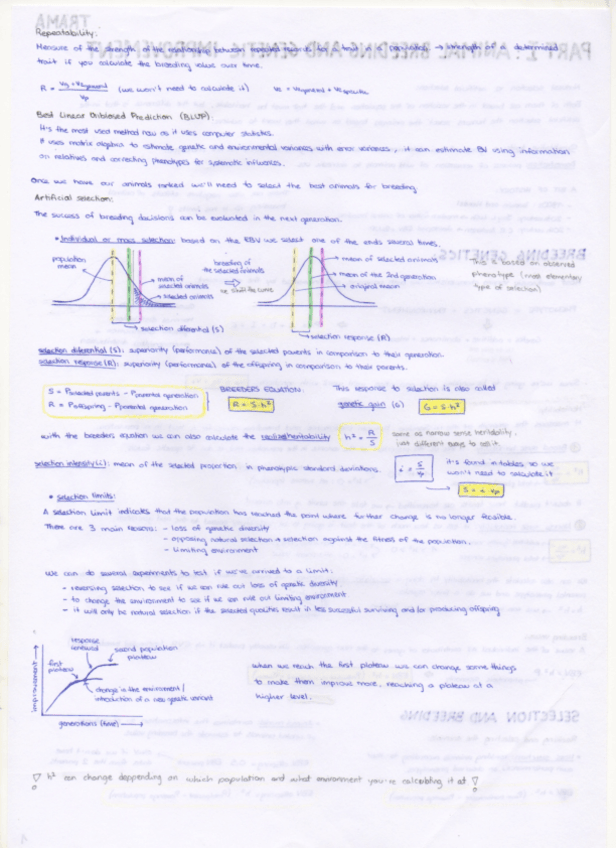 Repeatability:
Measure of the strength of the relationship between repeated records for a trait in a population → strength of a determined
trait if you calculate the breeding value over time.
R = (we won't need to calculate it)
Best Linear Unbiased Prediction (BLUP)
It's the most used method now as it uses computer statistics.
It uses matrix algebra to estimate genetic and environmental variances with error variances, it can estimate BV using information
on relatives and correcting phenotypes for systematic influences.
Once we have our animals ranked we'll need to select the best animals for breeding
Artificial selection:
The success of breeding decisions can be evaluated in the next generation.
• Individual or mass selection: based on the EBV we select one of the ends several times.
population mean
mean of selected animals
selected animals
selection diferential (S)
breeding of the selected animals
we shift the curve
mean of selected animals
mean of the 2nd generation
original mean
selection response (R)
this is based on observed
phenotype (most elementary
type of selection)
selection diferential (S): superiority (performance) of the selected parents in comparison to their generation.
selection response (R): superiority (performance) of the offspring in comparison to their parents.
S = Pselected parents - Pparental generation
R = Poffspring - Pparental generation
BREEDERS EQUATION:
R = S·h²
This response to selection is also called
genetic gain (G) G = S·h²
with the breeders equation we can also calculate the realized heritability h² = R/S
same as narrow sense heritability,
just different ways to tell it.
selection intensity (i): mean of the selected proportion in phenotypic standard deviations.
it's found in tables so we
won't need to calculate it
• selection limits:
A selection limit indicates that the population has reached the point where further change is no longer feasible.
There are 3 main reasons: - loss of genetic diversity
- opposing natural selection → selection against the fitness of the population.
- limiting environment
We can do several experiments to test if we've arrived to a limit.
- reversing selection to see if we can rule out loss of genetic diversity
- to change the environment to see if we can rule out limiting environment
- it will only be natural selection if the selected qualities result in less successful surviving and/or producing offspring
improvement
first plateau
response renewed
second population plateau
change in the environment /
introduction of a new genetic variant
generations (time)
when we reach the first plateau we can change some things
to make them improve more, reaching a plateau at a
higher level.
h² can change deppending on which population and what environment you're calculating it at